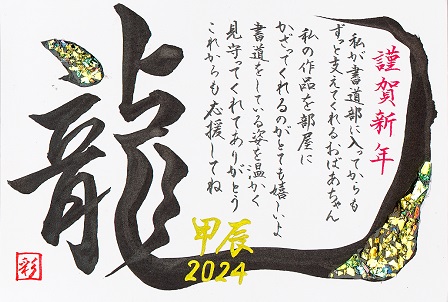 謹賀新年
私が書道部に入ってからも
ずっと支えてくれるおばあちゃん
私の作品を部屋に
かざってくれるのがとても嬉しいよ
書道をしている姿を温かく
見守ってくれてありがとう
これからも応援してね
龍
甲辰
2024
彩